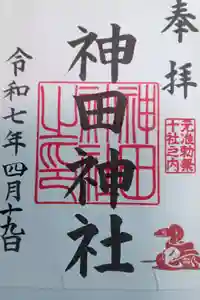 奉拝
元准勅祭
十社之内
神田神社
神田
神社
之印
令和七年四月十九日